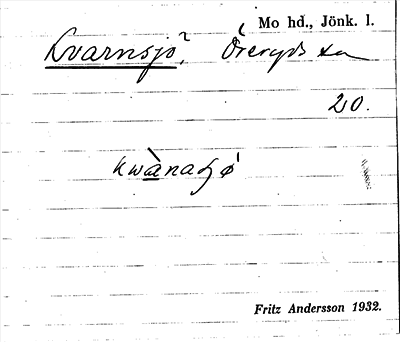 Mo hd., Jönk. l.
Kvarnsjö? Öreryds sn
20.
kwànaʃø
Fritz Andersson 1932.